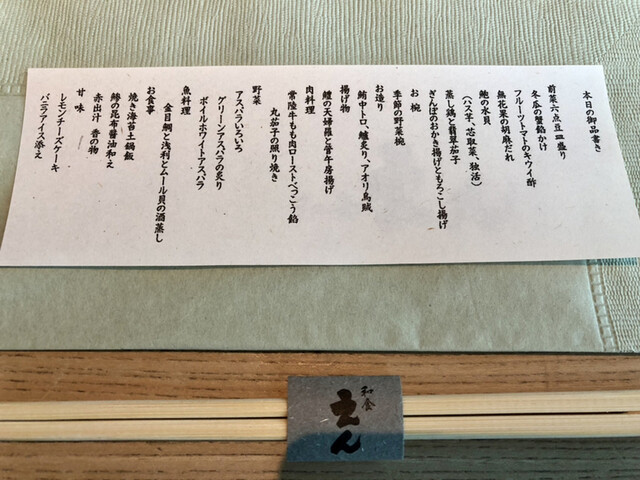 本日の御品書き
前菜六点豆皿盛り
冬瓜の蟹餡かけ
フルーツトマトのキウイ酢
無花果の胡麻だれ
鮑の水貝
(ハス芋、芯取菜、独活)
蒸し鶏と翡翠茄子
ぎんぽのおかき揚げともろこし揚げ
お椀
季節の野菜椀
お造り
鮪中トロ、鱸炙り、アオリ烏賊
揚げ物
鱧の天婦羅と管牛房揚げ
肉料理
常陸牛もも肉ローストべっこう餡
丸茄子の照り焼き
野菜
アスパラいろいろ
グリーンアスパラの炙り
ボイルホワイトアスパラ
魚料理
金目鯛と浅利とムール貝の酒蒸し
お食事
焼き海苔土鍋飯
鯵の昆布醤油和え
赤出汁 香の物
甘味
レモンチーズケーキ
バニラアイス添え
和食
えん